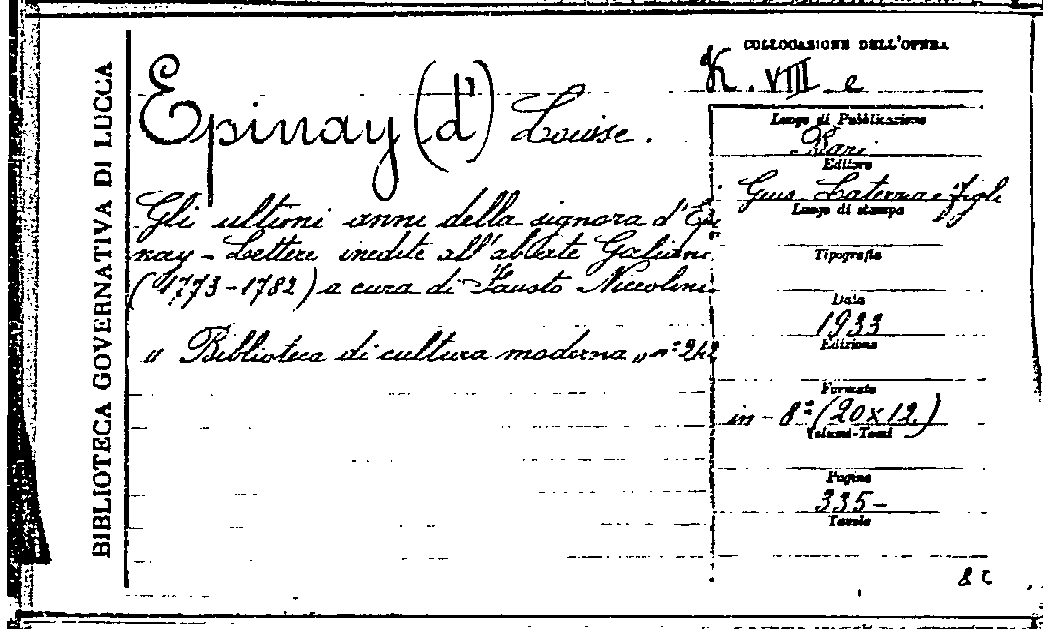 BIBLIOTECA GOVERNATIVA DI LUCCA
Epinay (d') Louise.
Gli ultimi anni della signora d'Epi
nay - Lettere inedite all'abate Galiani
(1773-1782) a cura di Fausto Niccolini.
" Biblioteca di cultura moderna " n° 242
COLLOCAZIONE DELL'OPERA
K. VIII e
Luogo di Pubblicazione
Bari
Editore
Gius. Laterza e figli
Luogo di stampa
Tipografia
Data
1933
Edizione
Formato
in - 8° (20x12)
Volumi-Tomi
Pagine
335-
Tavole